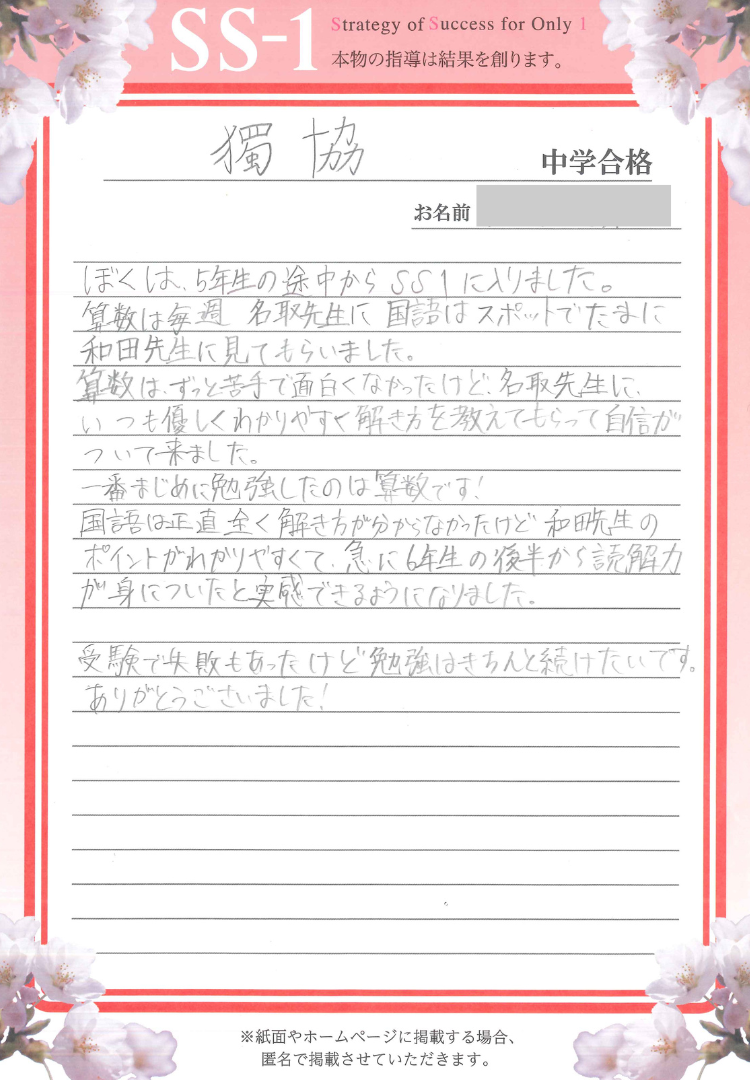 SS-1
Strategy of Success for Only 1
本物の指導は結果を創ります。
獨協 中学合格
お名前
ぼくは、5年生の途中からSS1に入りました。
算数は毎週 名取先生に 国語はスポットでたまに
和田先生に見てもらいました。
算数は、ずっと苦手で面白くなかったけど、名取先生に、
いつも優しくわかりやすく解き方を教えてもらって自信が
ついて来ました。
一番まじめに勉強したのは算数です!
国語は正直全く解き方が分からなかったけど和田先生の
ポイントがわかりやすくて、急に6年生の後半から読解力
が身についたと実感できるようになりました。
受験で失敗もあったけど勉強はきちんと続けたいです。
ありがとうございました!
※紙面やホームページに掲載する場合、
匿名で掲載させていただきます。